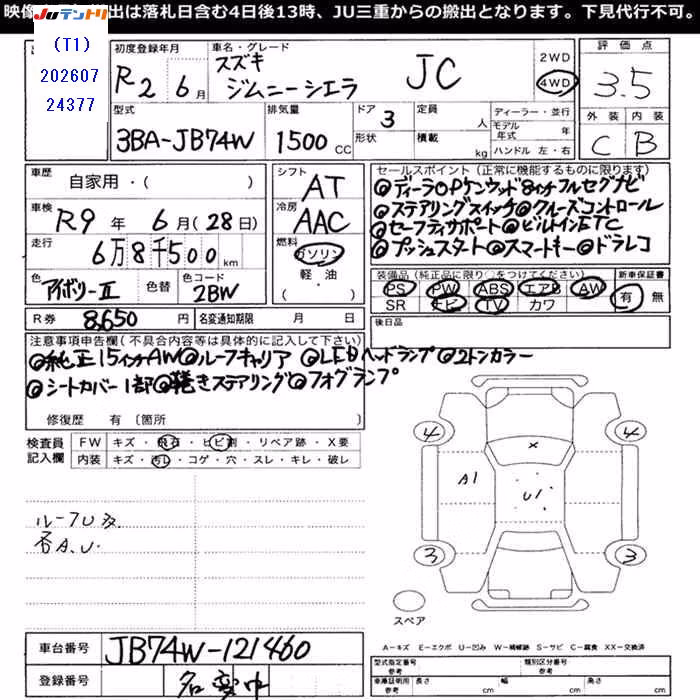 映像 出は落札日含む4日後13時、JU三重からの搬出となります。下見代行不可。
JUテントリ
(T1)
202607
24377
初度登録年月 R2 6月
車名・グレード スズキ ジムニーシエラ JC
2WD
4WD
評価点
3.5
外装 内装
C B
型式 3BA-JB74W
排気量 1500 CC
ドア 3
形状
定員 人
積載 kg
ディーラー・並行
モデル年式 年
ハンドル 左・右
車歴 自家用・( )
車検 R9年 6月(28日)
走行 6万8千500km
色 アイボリーII 色替 色コード 2BW
シフト AT
冷房 AAC
燃料 ガソリン
軽油・
( )
セールスポイント(正常に機能するものに限ります)
◎ディーラOPケンウッド8インチフルセグナビ
◎ステアリングスイッチ◎クルーズコントロール
◎セーフティサポート◎ビルトインETC
◎プッシュスタート◎スマートキー◎ドラレコ
装備品(純正品に限り○をつけてください)
PS PW ABS エアB AW
SR ナビ TV カワ
新車保証書
有 無
R券 8,650円
名変通知期限 月 日
後日品
注意事項申告欄(不具合内容等は具体的に記入して下さい)
◎純正15インチAW◎ルーフキャリア ◎LEDヘッドランプ◎2トンカラー
◎シートカバー1部◎巻きステアリング◎フォグランプ
修復歴 有 〔箇所 〕
検査員記入欄
FW キズ・飛石・ヒビ割・リペア跡・X要
内装 キズ・汚レ・コゲ・穴・スレ・キレ・破レ
ルーフU及
否A.U.
4 4
X
A1
U1
3 3
スペア
A…キズ E…エクボ U…凹み W…補修跡 S…サビ C…腐食 XX…交換済
車台番号 JB74W-121460
登録番号 名変中
型式指定番号 参考
類別区分番号 参考
車庫証明用 参考 長さ cm 幅 cm 高さ cm